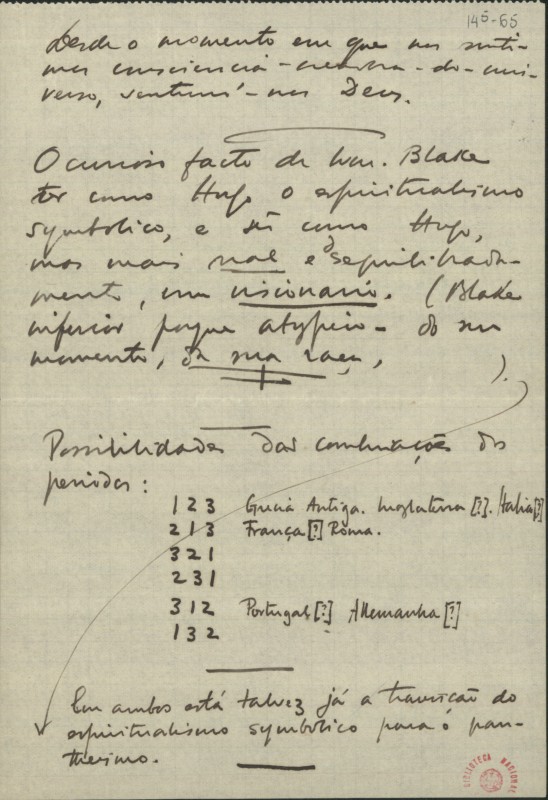 145-65
Desde o momento em que nos senti-
mos consciencia-membra-do-uni-
verso, sentimo-nos Deus.
O curioso facto de Wm. Blake
ter como Hugo o espiritualismo
symbolico, e ser como Hugo,
mas mais real e desequilibrada-
mente, um visionario. (Blake
inferior porque atypico - do seu
momento, da sua raça, ).
Possibilidades das combinações dos
periodos:
1 2 3 Grecia Antiga. Inglaterra [?]. Italia [?]
2 1 3 França [?] Roma.
3 2 1
2 3 1
3 1 2 Portugal [?] Allemanha [?]
1 3 2
Em ambos está talvez já a transição do
espiritualismo symbolico para o pan-
theismo.
BIBLIOTECA NACIONAL